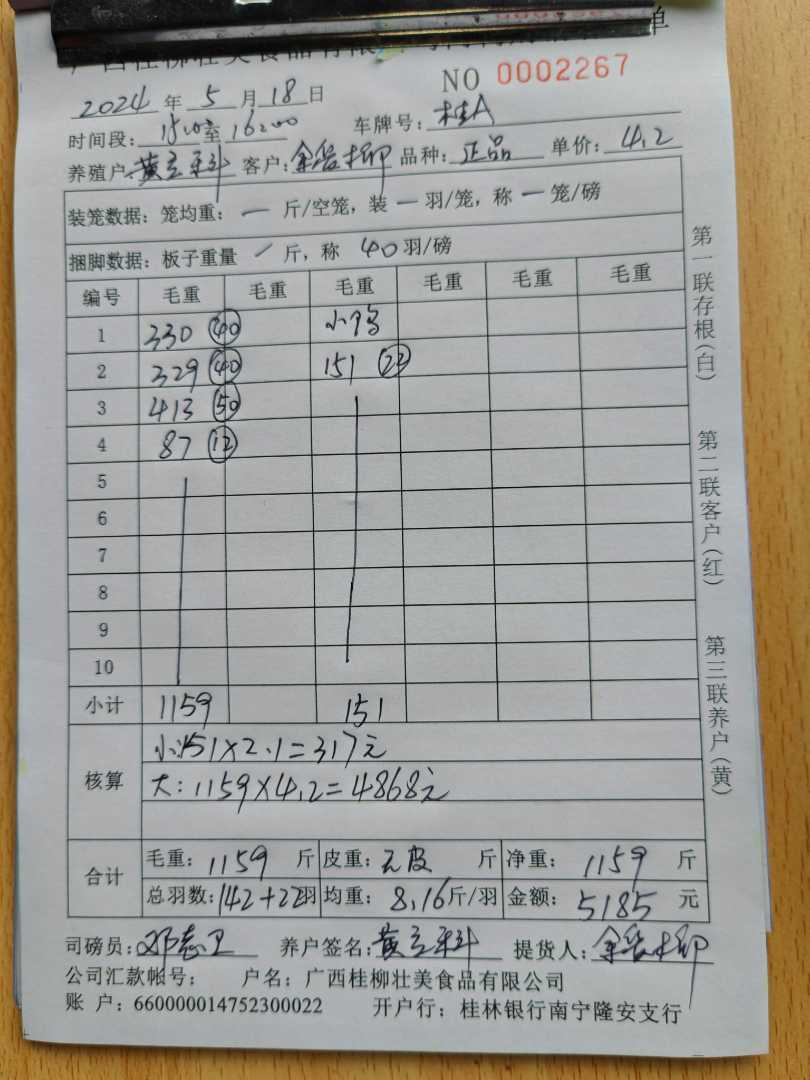 单
NO 0002267
2024 年 5 月 18 日
时间段: 15:00 至 16:00 车牌号: 桂A
养殖户: 黄立科 客户: 柳 品种: 正品 单价: 4.2
装笼数据: 笼均重: 一 斤/空笼, 装 一 羽/笼, 称 一 笼/磅
捆脚数据: 板子重量 / 斤, 称 40 羽/磅
编号 毛重 毛重 毛重 毛重 毛重 毛重
1 330 40 小鸡
2 329 40 151 22
3 413 50
4 87 12
5
6
7
8
9
10
小计 1159 151
核算 小:151×2.1=317元
大:1159×4.2=4868元
合计 毛重: 1159 斤 皮重: 无皮 斤 净重: 1159 斤
总羽数: 142+22 羽 均重: 8.16 斤/羽 金额: 5185 元
司磅员: 邓志卫 养户签名: 黄立科 提货人: 柳
公司汇款帐号: 户名: 广西桂柳壮美食品有限公司
账 户: 660000014752300022 开户行: 桂林银行南宁隆安支行
第一联存根(白)
第二联客户(红)
第三联养户(黄)